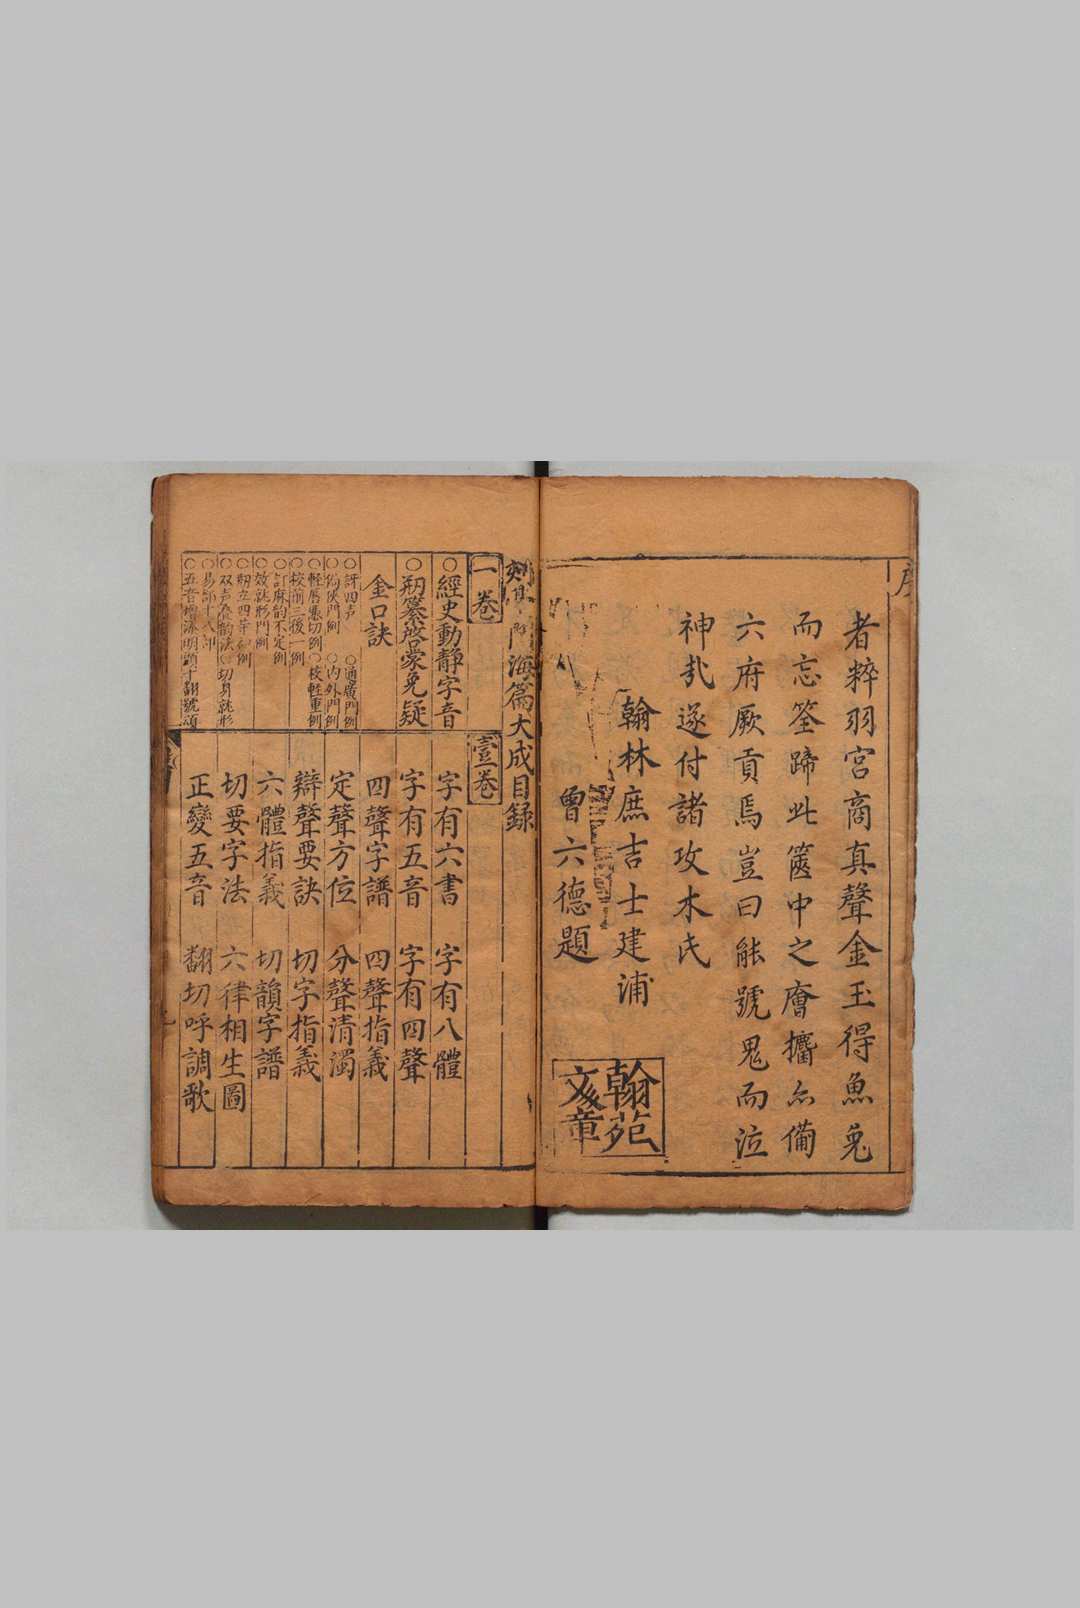 序
者粹羽宮商真聲金玉得魚兎
而忘筌蹄此篋中之廥攟亦備
六府厥貢焉豈曰能號鬼而泣
神㢤遂付諸攻木氏
翰林庶吉士建浦
曾六德題
翰苑
文章
海篇大成目録
一卷
○經史動靜字音
○㓨纂啓蒙免疑
金口訣
○訝四声 ○通廣門例
○侷俠門例 ○内外門例
○輕唇急切例 ○校輕重例
○校前三後一例
不定例
○就形門例
○双声叠韵法 ○切身就形
壹卷
字有六書 字有八體
字有五音 字有四聲
四聲字譜 四聲指義
定聲方位 分聲清濁
辯聲要訣 切字指義
六體指義 切韻字譜
切要字法 六律相生圖
正變五音 翻切呼調歌